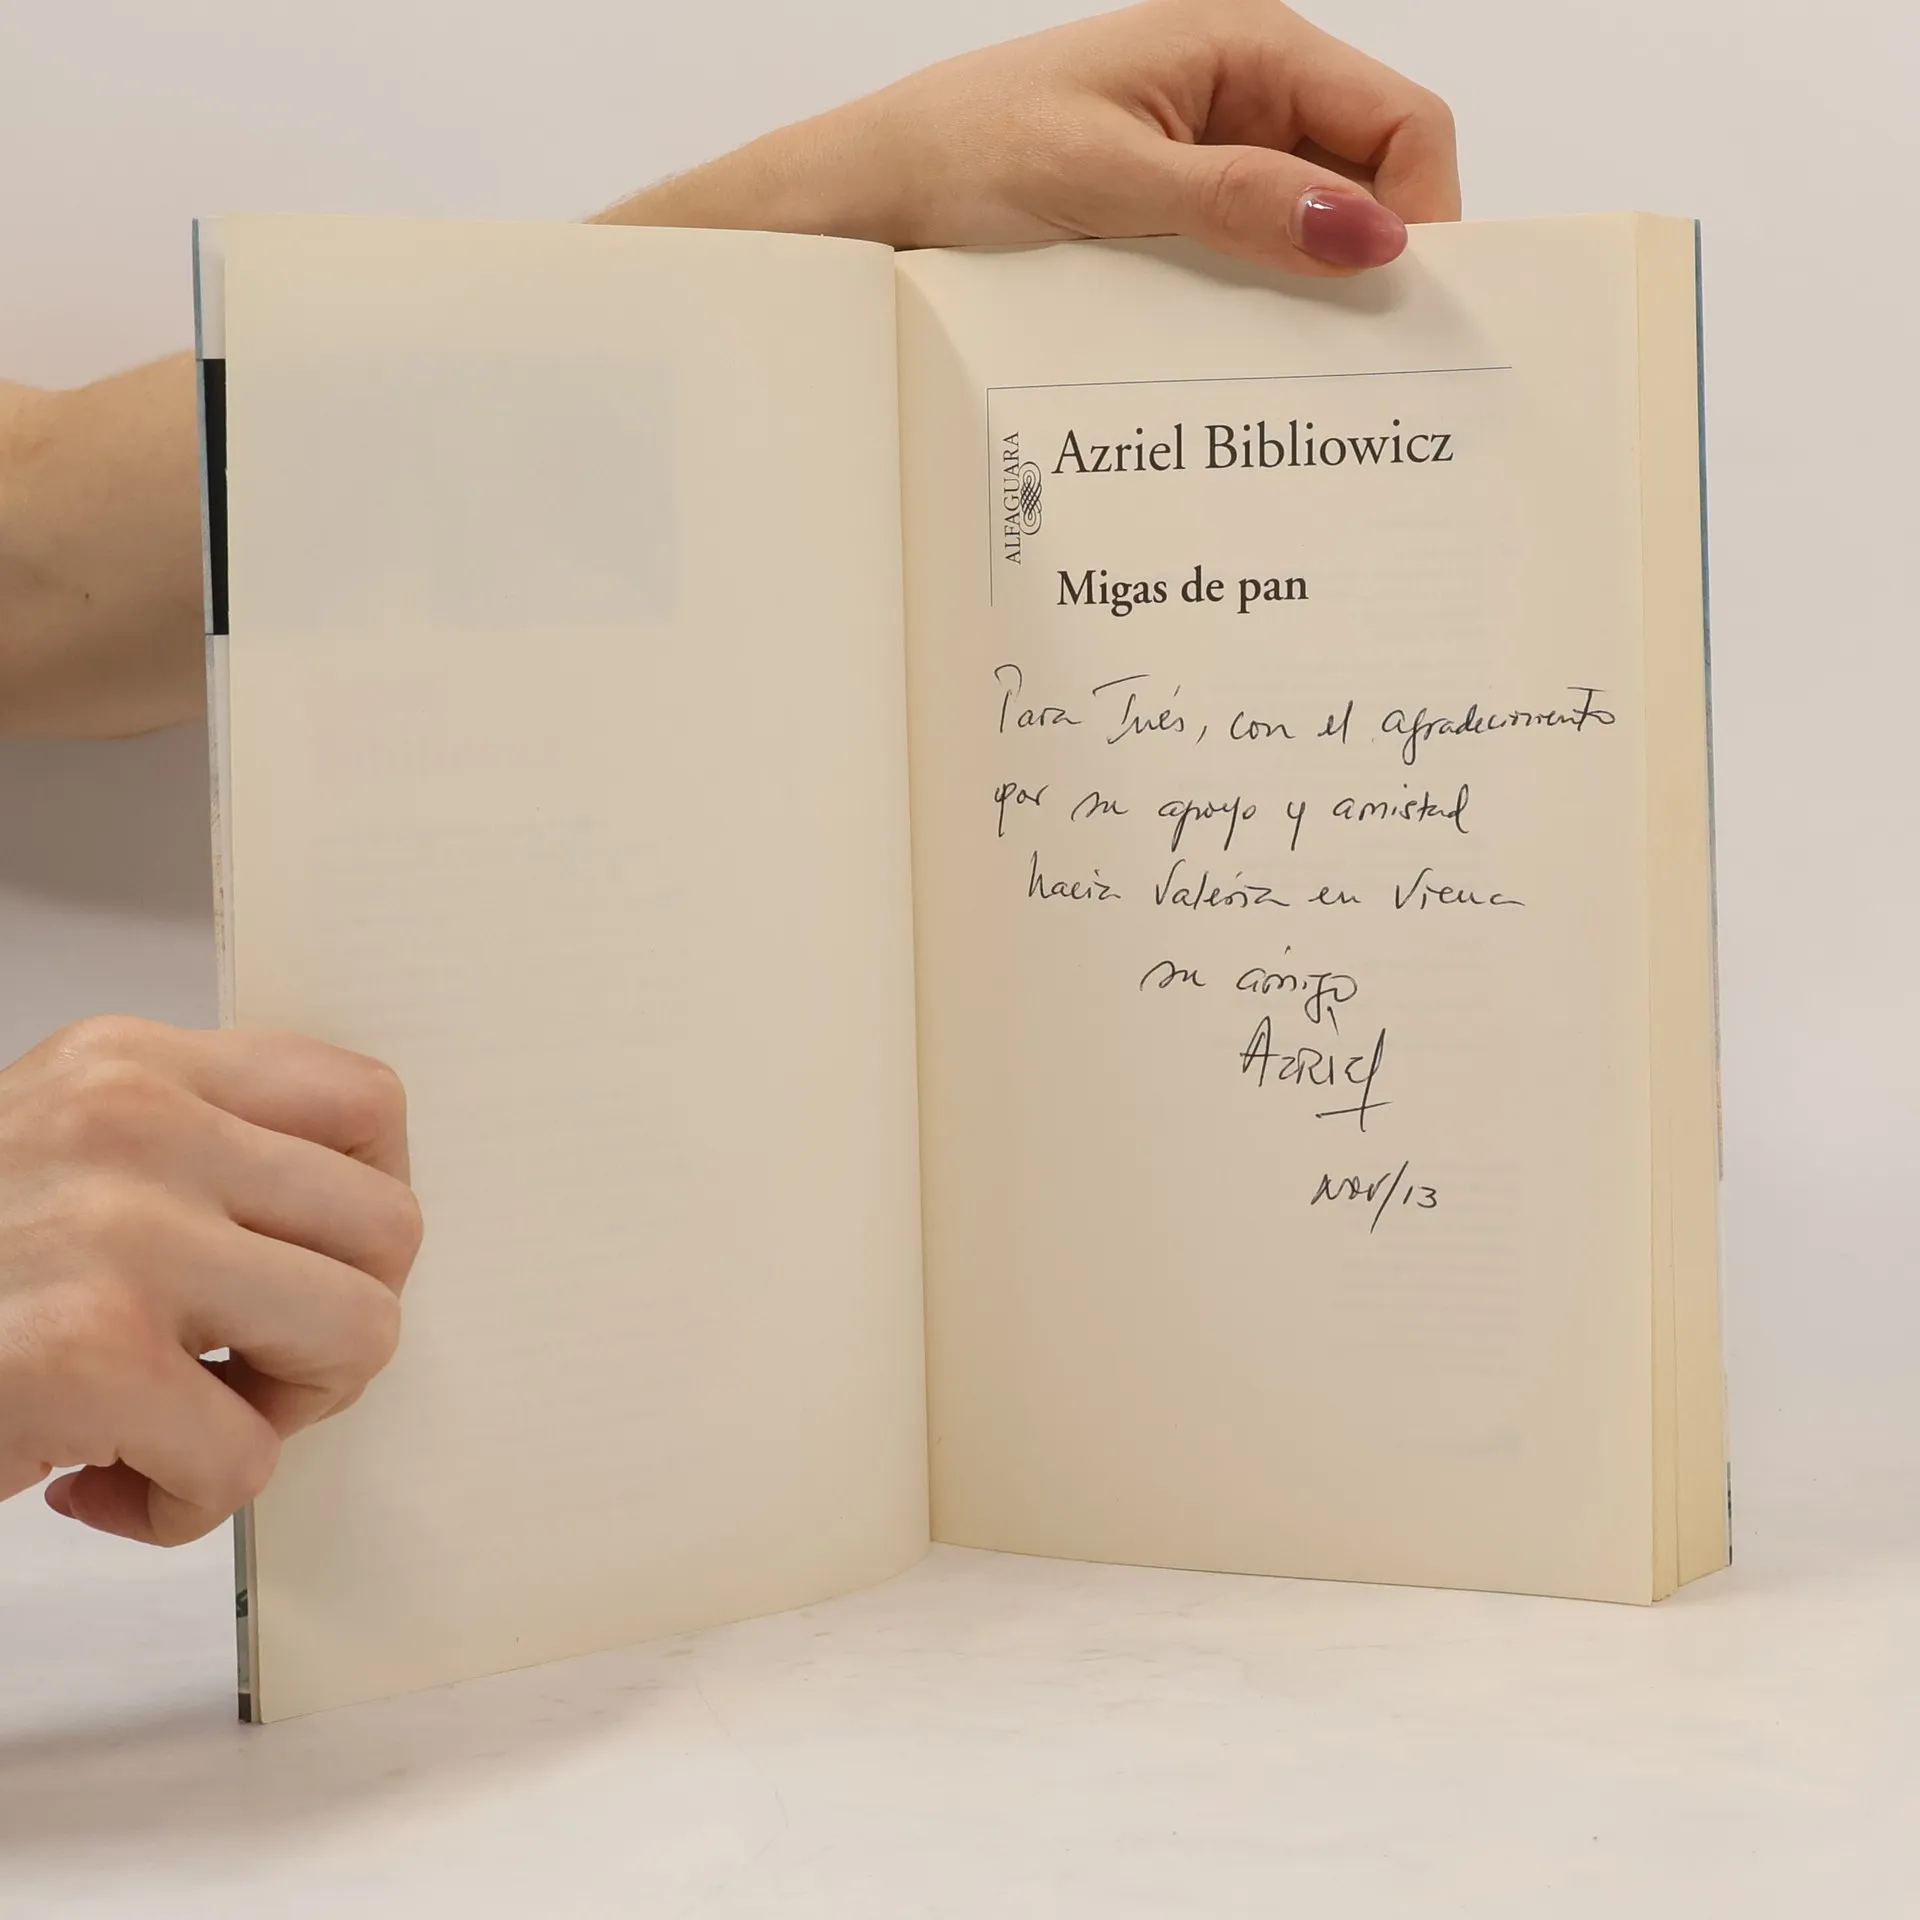 Azriel Bibliowicz
ALFAGUARA
Migas de pan
Para Inés, con el agradecimiento
por su apoyo y amistad
hacia Valeria en Viena
su amigo
AZRIEL
NOV/13